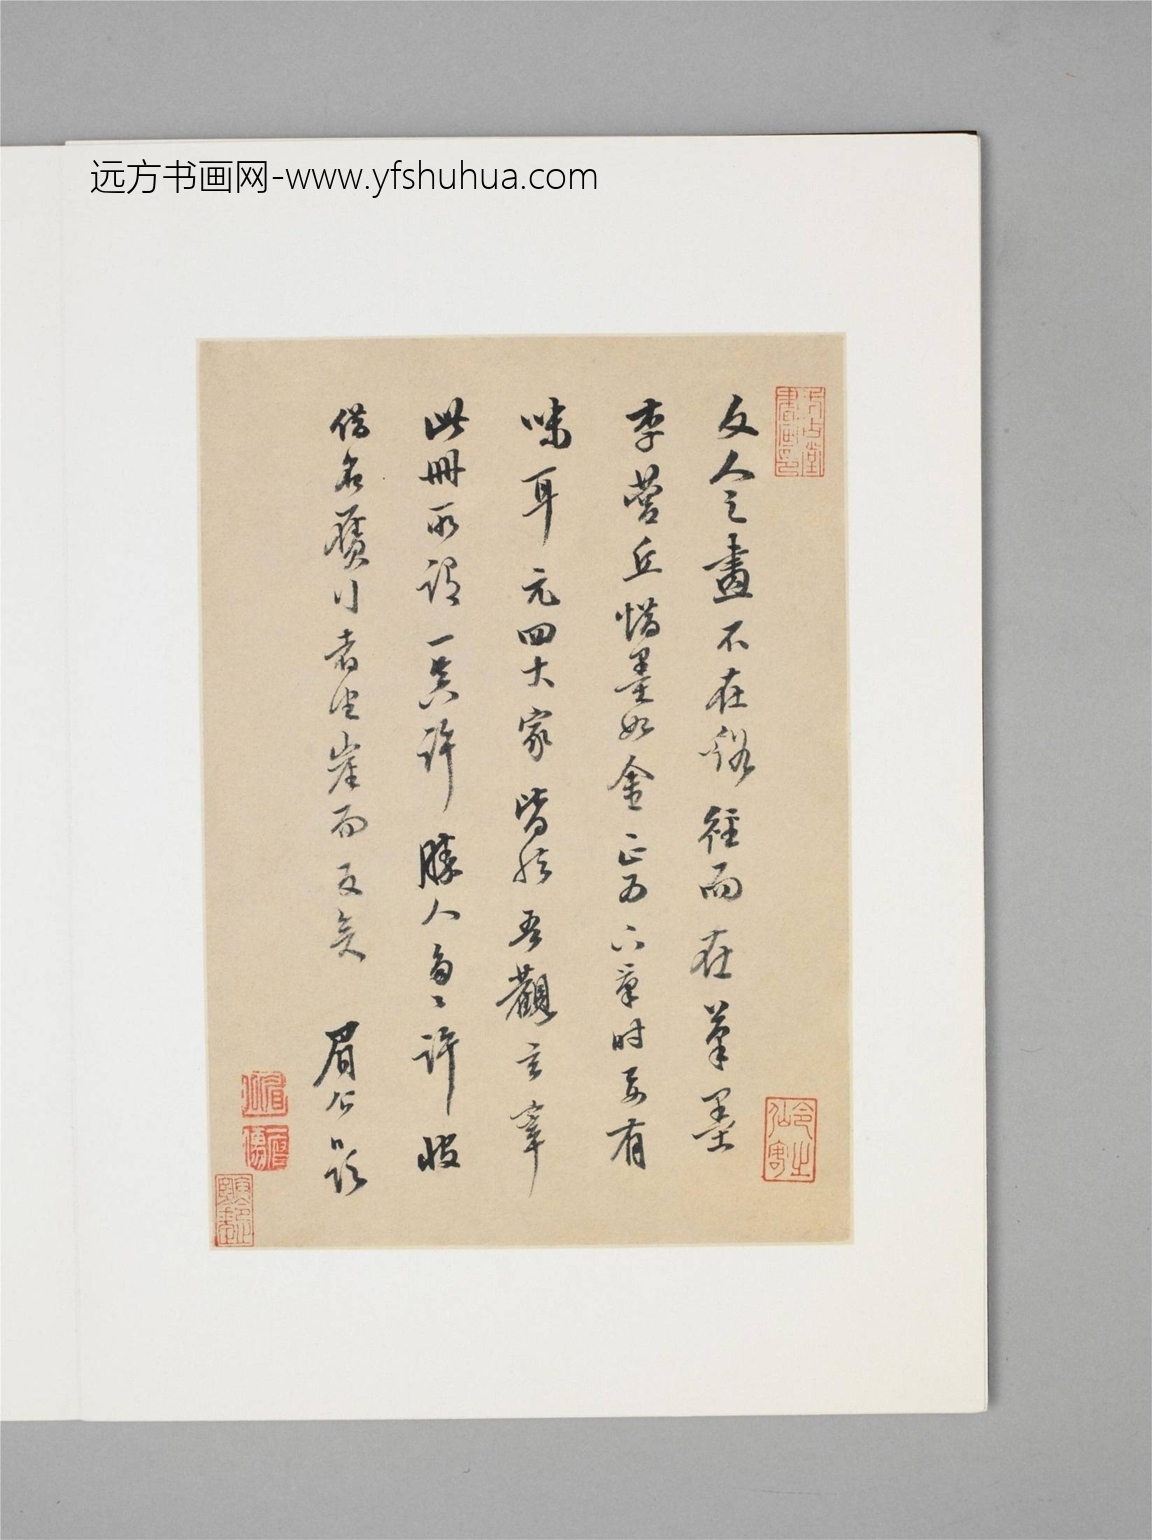 远方书画网-www.yfshuhua.com
文人之畫不在蹊徑而在筆墨
李營丘惜墨如金正為下筆時要有
味耳元四大家皆然吾觀玄宰
此冊所謂一點許勝人多多許彼
借名贋行者望崖而反矣
眉公題